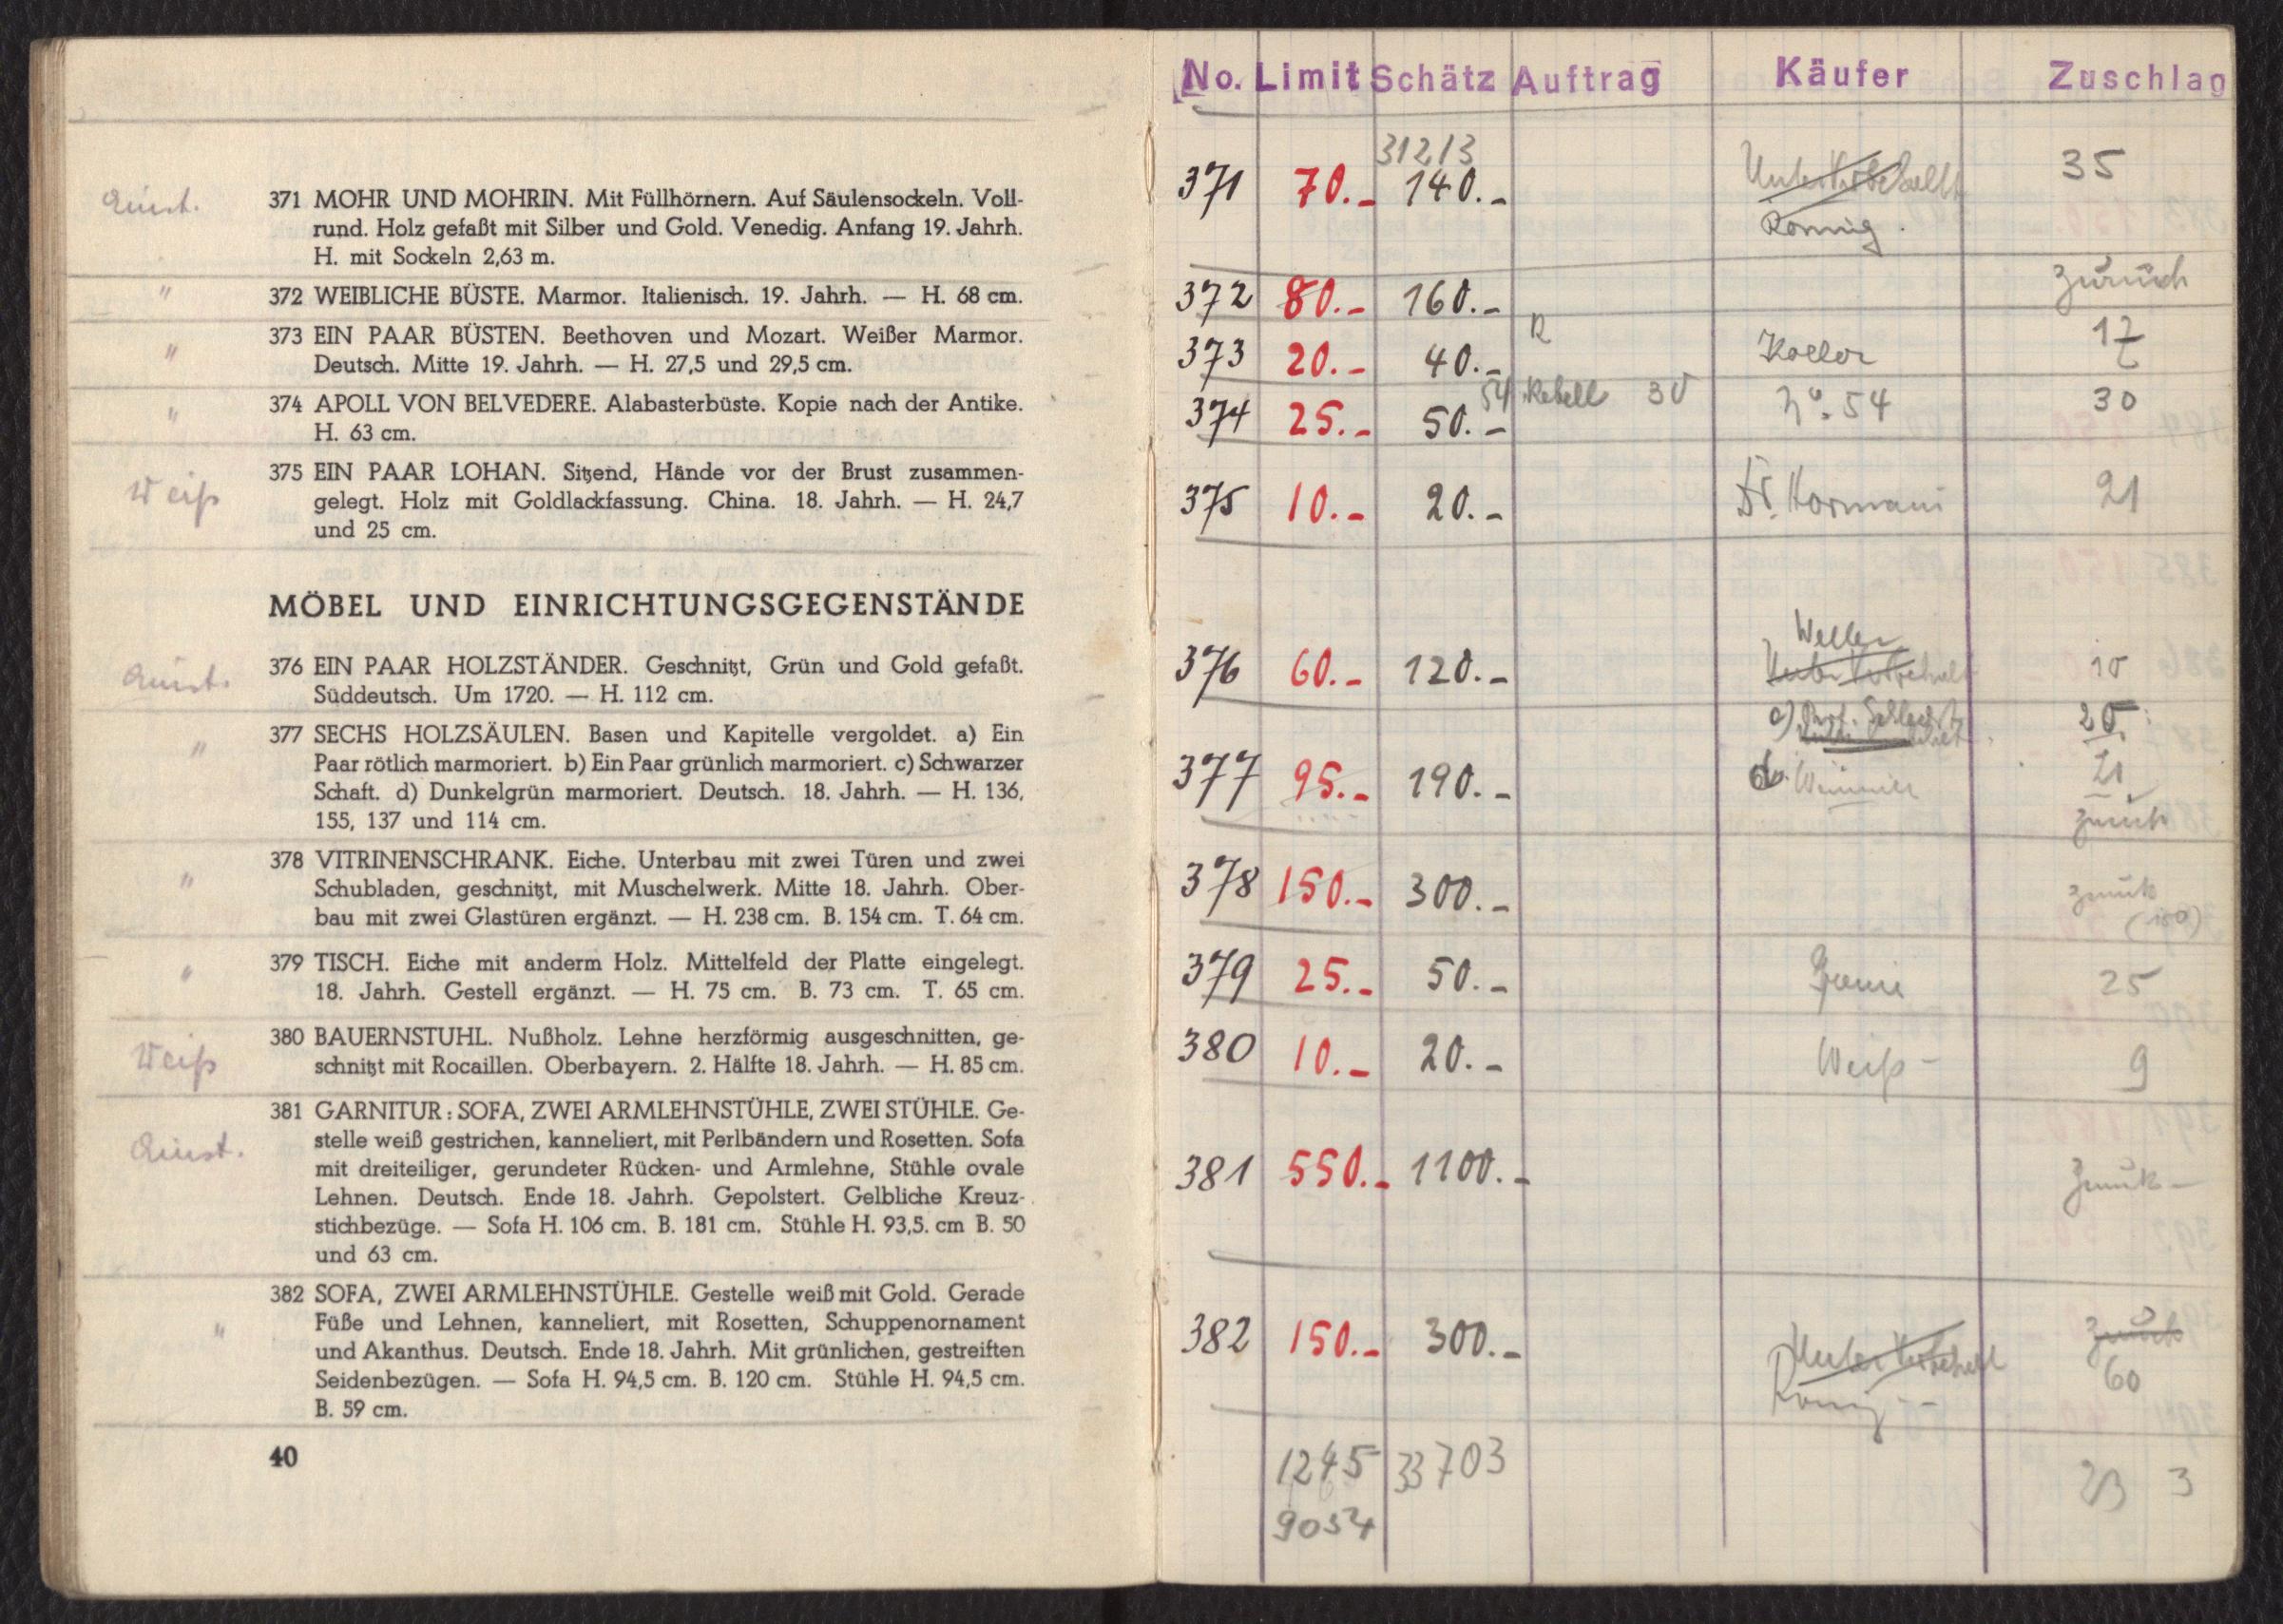 371 MOHR UND MOHRIN. Mit Füllhörnern. Auf Säulensockeln. Voll-
rund. Holz gefaßt mit Silber und Gold. Venedig. Anfang 19. Jahrh.
H. mit Sockeln 2,63 m.
"
372 WEIBLICHE BÜSTE. Marmor. Italienisch. 19. Jahrh. — H. 68 cm.
373 EIN PAAR BÜSTEN. Beethoven und Mozart. Weißer Marmor.
" Deutsch. Mitte 19. Jahrh. — H. 27,5 und 29,5 cm.
" 374 APOLL VON BELVEDERE. Alabasterbüste. Kopie nach der Antike.
H. 63 cm.
375 EIN PAAR LOHAN. Sitzend, Hände vor der Brust zusammen-
Weiß gelegt. Holz mit Goldlackfassung. China. 18. Jahrh. — H. 24,7
und 25 cm.
MÖBEL UND EINRICHTUNGSGEGENSTÄNDE
376 EIN PAAR HOLZSTÄNDER. Geschnitzt, Grün und Gold gefaßt.
Süddeutsch. Um 1720. — H. 112 cm.
" 377 SECHS HOLZSÄULEN. Basen und Kapitelle vergoldet. a) Ein
Paar rötlich marmoriert. b) Ein Paar grünlich marmoriert. c) Schwarzer
Schaft. d) Dunkelgrün marmoriert. Deutsch. 18. Jahrh. — H. 136,
155, 137 und 114 cm.
378 VITRINENSCHRANK. Eiche. Unterbau mit zwei Türen und zwei
" Schubladen, geschnitzt, mit Muschelwerk. Mitte 18. Jahrh. Ober-
bau mit zwei Glastüren ergänzt. — H. 238 cm. B. 154 cm. T. 64 cm.
" 379 TISCH. Eiche mit anderm Holz. Mittelfeld der Platte eingelegt.
18. Jahrh. Gestell ergänzt. — H. 75 cm. B. 73 cm. T. 65 cm.
380 BAUERNSTUHL. Nußholz. Lehne herzförmig ausgeschnitten, ge-
Weiß schnitzt mit Rocaillen. Oberbayern. 2. Hälfte 18. Jahrh. — H. 85 cm.
381 GARNITUR: SOFA, ZWEI ARMLEHNSTÜHLE, ZWEI STÜHLE. Ge-
stelle weiß gestrichen, kanneliert, mit Perlbändern und Rosetten. Sofa
mit dreiteiliger, gerundeter Rücken- und Armlehne, Stühle ovale
Lehnen. Deutsch. Ende 18. Jahrh. Gepolstert. Gelbliche Kreuz-
stichbezüge. — Sofa H. 106 cm. B. 181 cm. Stühle H. 93,5. cm B. 50
und 63 cm.
382 SOFA, ZWEI ARMLEHNSTÜHLE. Gestelle weiß mit Gold. Gerade
" Füße und Lehnen, kanneliert, mit Rosetten, Schuppenornament
und Akanthus. Deutsch. Ende 18. Jahrh. Mit grünlichen, gestreiften
Seidenbezügen. — Sofa H. 94,5 cm. B. 120 cm. Stühle H. 94,5 cm.
B. 59 cm.
40
No. Limit Schätz Auftrag Käufer Zuschlag
31213
371 70.- 140.- 35
372 80.- 160.- zurück
373 20.- 40.- R 17
374 25.- 50.- 54 30 No. 54 30
375 10.- 20.- Dr. 21
Weller
376 60.- 120.- 10
a) Prof. 20
377 95.- 190.- 21
zurück
378 150.- 300.- zurück
(150)
379 25.- 50.- 25
380 10.- 20.- Weiß - 9
381 550.- 1100.- zurück -
382 150.- 300.- zurück
Unter Vorbehalt 60
König
1245 33703
9054